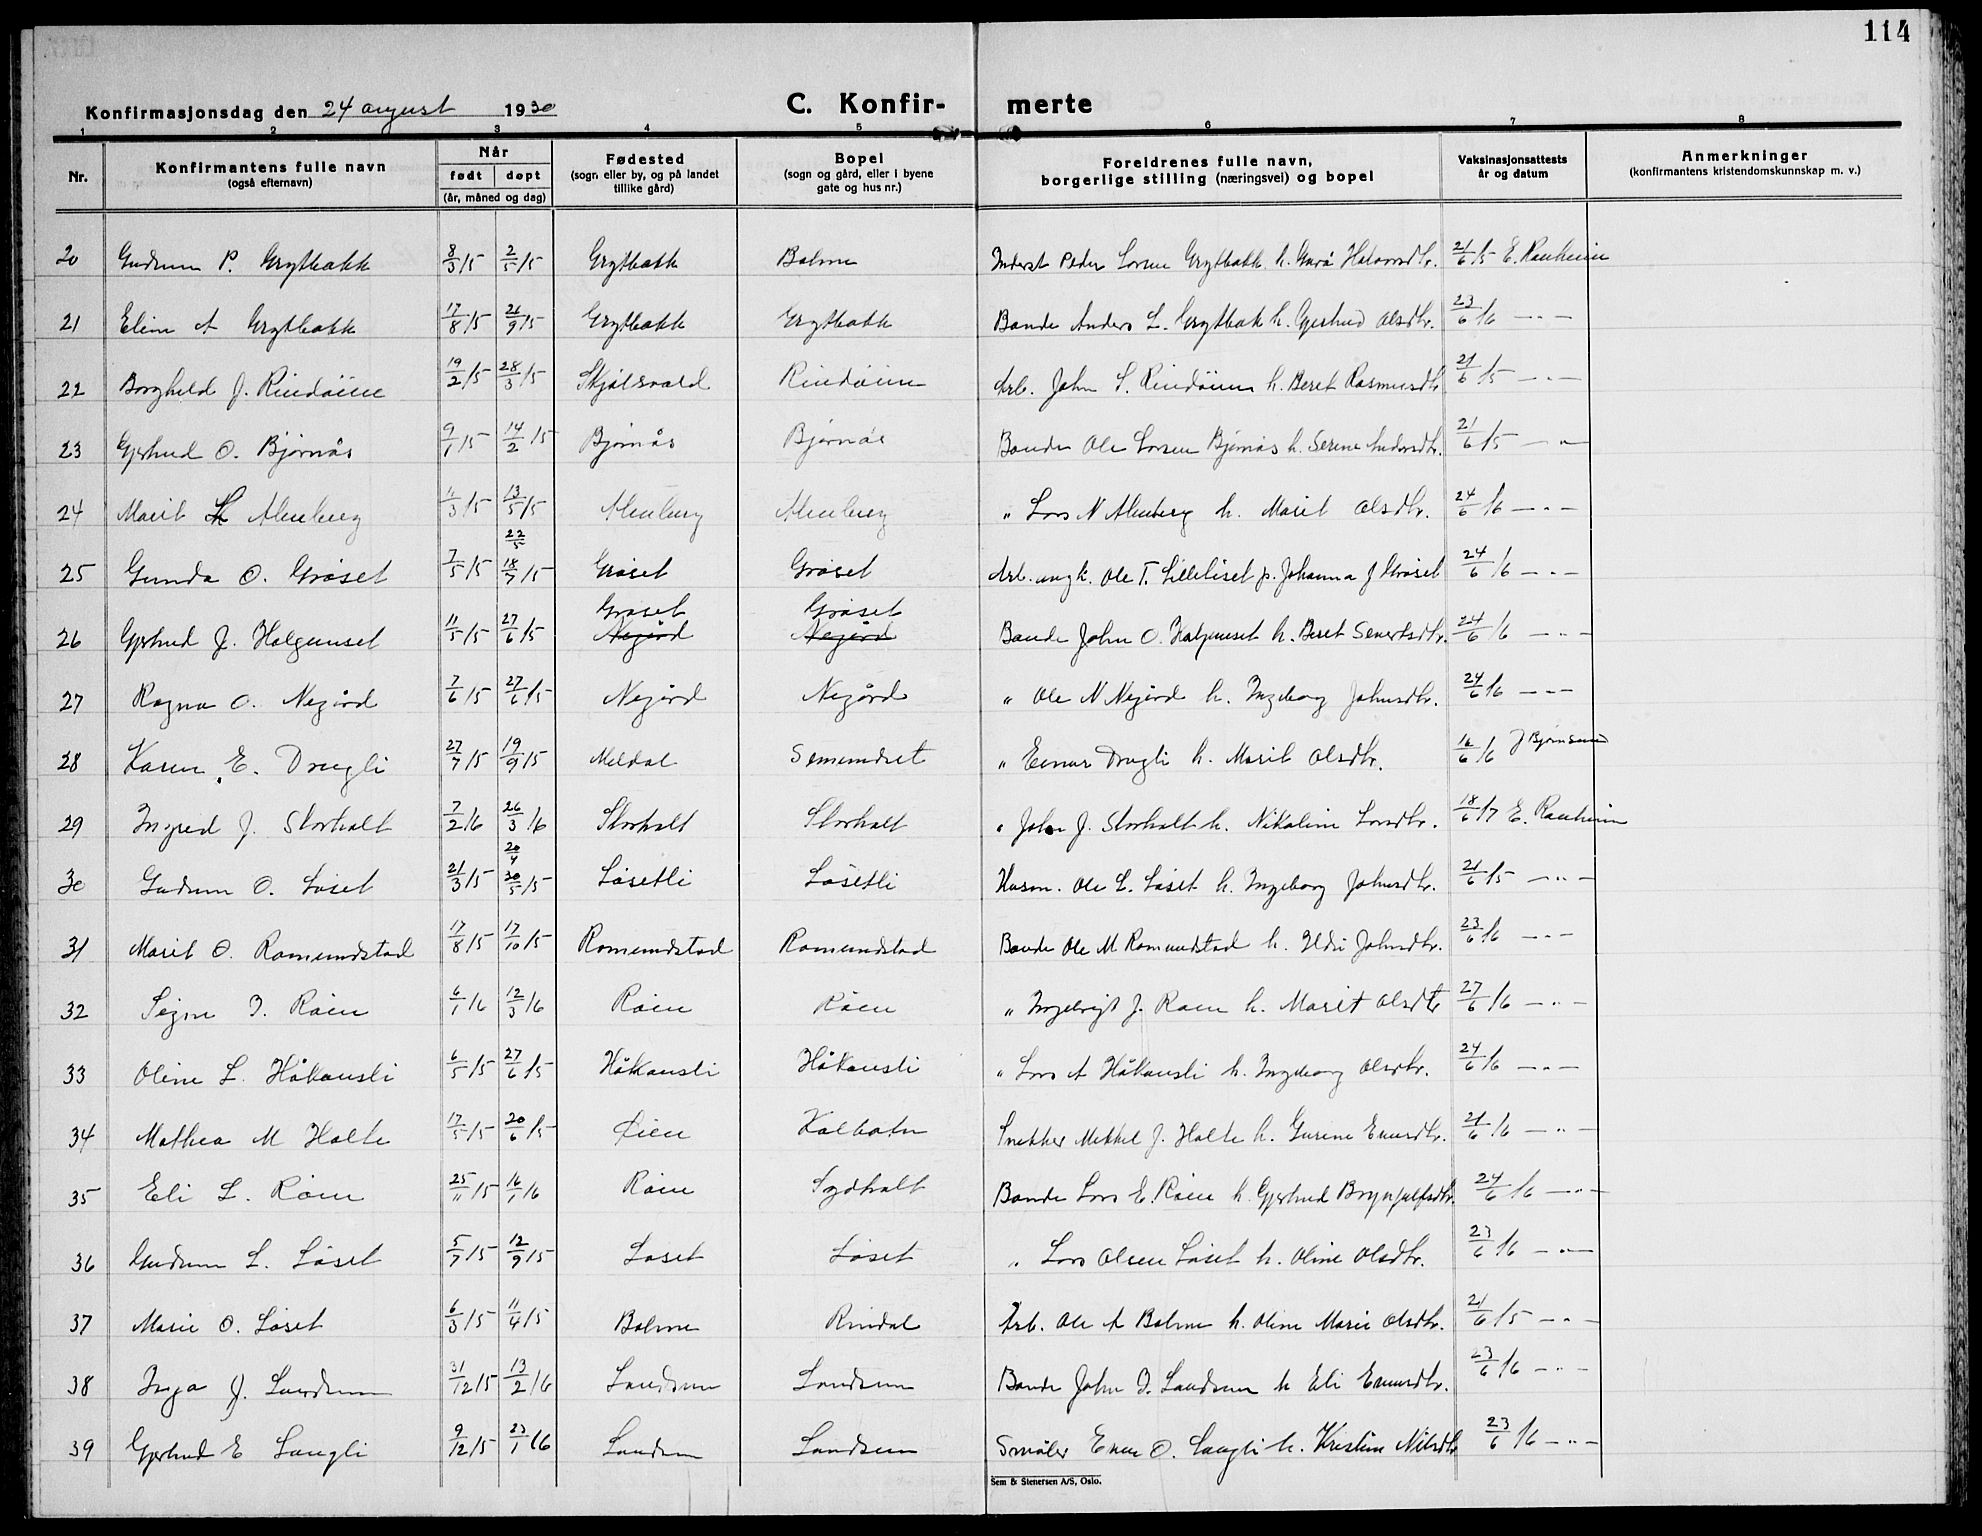 114
Konfirmasjonsdag den 24 august 1930 C. Konfir- merte
1 2 3 4 5 6 7 8
Nr. Konfirmantens fulle navn (også efternavn) Når født døpt (år, måned og dag) Fødested (sogn eller by, og på landet tillike gård) Bopel (sogn og gård, eller i byene gate og hus nr.) Foreldrenes fulle navn, borgerlige stilling (næringsvei) og bopel Vaksinasjonsattests år og datum Anmerkninger (konfirmantens kristendomskunnskap m. v.)
20 Gudrun P. Grytbakk 8/3 15 2/5 15 Grytbakk Bolme Inderst Peder Larsen Grytbakk h. Halvorsdtr. 21/6 15 E. Ranheim
21 Elin A Grytbakk 17/8 15 26/9 15 Grytbakk Grytbakk Bonde Anders L. Grytbak h. Gjertrud Olsdtr. 23/6 16 — " —
22 Borghild J. Rindöien 19/2 15 28/3 15 Rindöien Arb. John S. Rindöien h. Beret Rasmusdtr. 21/6 15 — " —
23 Gjertrud O. Bjørnås 9/1 15 14/2 15 Bjørnås Bjørnås Bonde Ole Larsen Bjørnås h. Serine Andersdtr. 21/6 15 — "
24 Marit L. Almberg 11/3 15 13/5 15 Almberg Almberg " Lars N Almberg h. Marit Olsdtr. 24/6 16 — " —
25 Gunda O. Grøset 7/5 15 22/5 18/7 15 Grøset Grøset Arb. ungk. Ole T. Lilleliset p. Johanna J Grøset 24/6 16 — " —
26 Gjertrud J. Halgunset 11/5 15 27/6 15 Grøset Negård Grøset Negård Bonde John O. Halgunset h. Beret Sivertsdtr. 24/6 16 — " —
27 Ragna O. Negård 7/6 15 27/6 15 Negård Negård " Ole N Negård h. Ingeborg Johnsdtr. 24/6 16 — " —
28 Karen E. Drugli 27/7 15 19/9 15 Meldal " Einar Drugli h. Marit Olsdtr. 16/6 16 J Bjørnsund
29 Ingrid J. Storholt 7/2 16 26/3 16 Storholt Storholt " John J. Storholt h. Nikoline Larsdtr. 18/6 17 E. Ranheim
30 Gudrun O. Løset 21/3 15 20/4 30/5 15 Løsetli Løsetli Husm. Ole L. Løset h. Ingeborg Johnsdtr. 21/6 15 — " —
31 Marit O. Romundstad 17/8 15 17/10 15 Romundstad Romundstad Bonde Ole M Romundstad h. Ildri Johnsdtr. 23/6 16 — " —
32 Signe I. Røen 6/1 16 12/3 16 Røen Røen " Ingebrigt J. Røen h. Marit Olsdtr 27/6 16 — " —
33 Oline L. Håkansli 6/5 15 27/6 15 Håkansli Håkansli " Lars A Håkansli h. Ingeborg Olsdtr. 24/6 16 — " —
34 Mathea M Holte 17/5 15 20/6 15 Øien Kalbotn Snekker Mekkel J. Holte h. Gurine Einarsdtr. 21/6 16 — " —
35 Eli L. Røen 25/11 15 16/1 16 Røen Sydholt Bonde Lars E. Røen h. Gjertrud Brynjulfsdtr. 24/6 16 — " —
36 Gudrun L. Løset 5/7 15 12/9 15 Løset Løset " Lars Olsen Løset h. Oline Olsdtr. 23/6 16 — " —
37 Marie O. Løset 6/3 15 11/4 15 Bolme Rindal Arb. Ole A Bolme h. Oline Marie Olsdtr. 21/6 15 — " —
38 Inga J. Landsem 31/12 15 13/2 16 Landsem Landsem Bonde John I. Landsem h Eli Einarsdtr. 23/6 16 — " —
39 Gjertrud E Langli 9/12 15 23/1 16 Landsem Landsem Småler Einar O. Langli h. Kristine Nilsdtr 23/6 16 — " —
Sem & Stenersen A/S, Oslo.